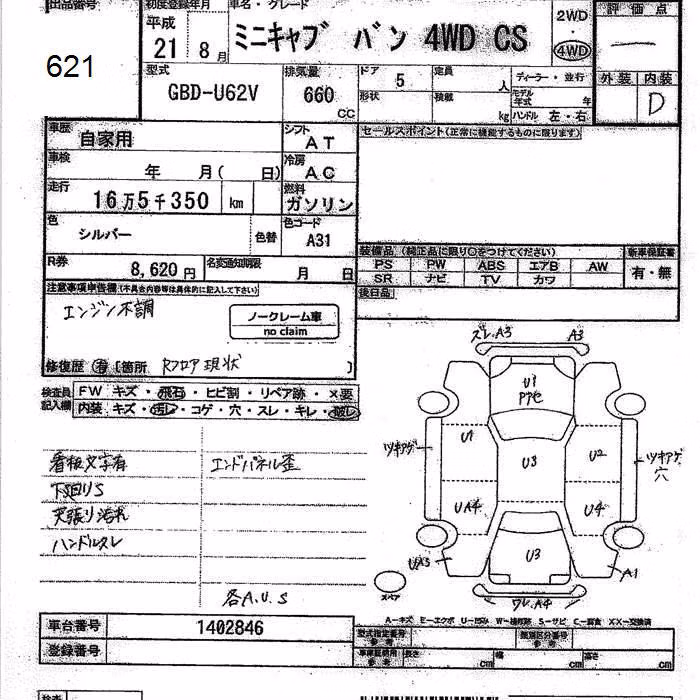 出品番号
初度登録年月
車名・グレード
評価点
621
平成
21
8
月
ミニキャブ バン 4WD CS
2WD
・
4WD
―
型式
GBD-U62V
排気量
660
CC
ドア
5
定員
人
形状
積載
kg
ディーラー・並行
モデル年式
年
ハンドル 左・右
外装
内装
D
車歴
自家用
シフト
AT
セールスポイント(正常に機能するものに限ります)
車検
年 月( 日)
冷房
AC
走行
16万5千350
km
燃料
ガソリン
色
シルバー
色替
色コード
A31
R券
8,620円
名変通知期限
月 日
装備品 (純正品に限り○をつけてください)
新車保証書
PS PW ABS エアB AW
SR ナビ TV カワ
有・無
後日品
注意事項申告欄(不具合内容等は具体的に記入して下さい)
エンジン不調
ノークレーム車
no claim
修復歴 有 [箇所 Rフロア現状 ]
検査員記入欄
FW キズ・飛石・ヒビ割・リペア跡・×要
内装 キズ・汚レ・コゲ・穴・スレ・キレ・破レ
看板文字有
エンドパネル歪
下回りS
天張り汚れ
ハンドルスレ
各A.U.S
ズレ.A3
A3
U1
U1
U2
U3
ツキアゲ
ツキアゲ
穴
UA4
U4
U3
UA3
A1
ワレ.A4
スペア
A-キズ E-エクボ U-凹み W-補修跡 S-サビ C-腐食 XX-交換済
車台番号
1402846
登録番号
型式指定番号
参考
類別区分番号
参考
車庫証明用
参考
長さ
cm
幅
cm
高さ
cm
検査